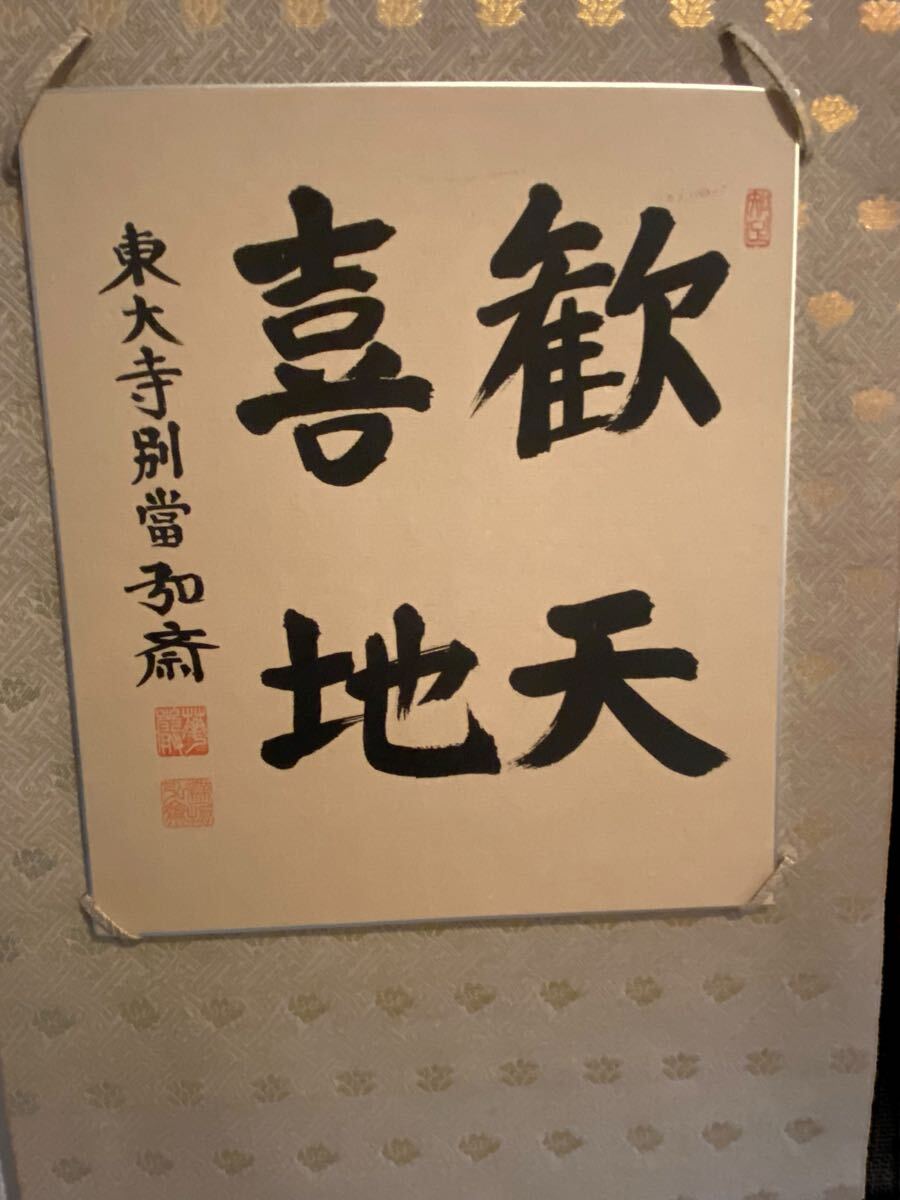 歓天
喜地
東大寺別當弘斎